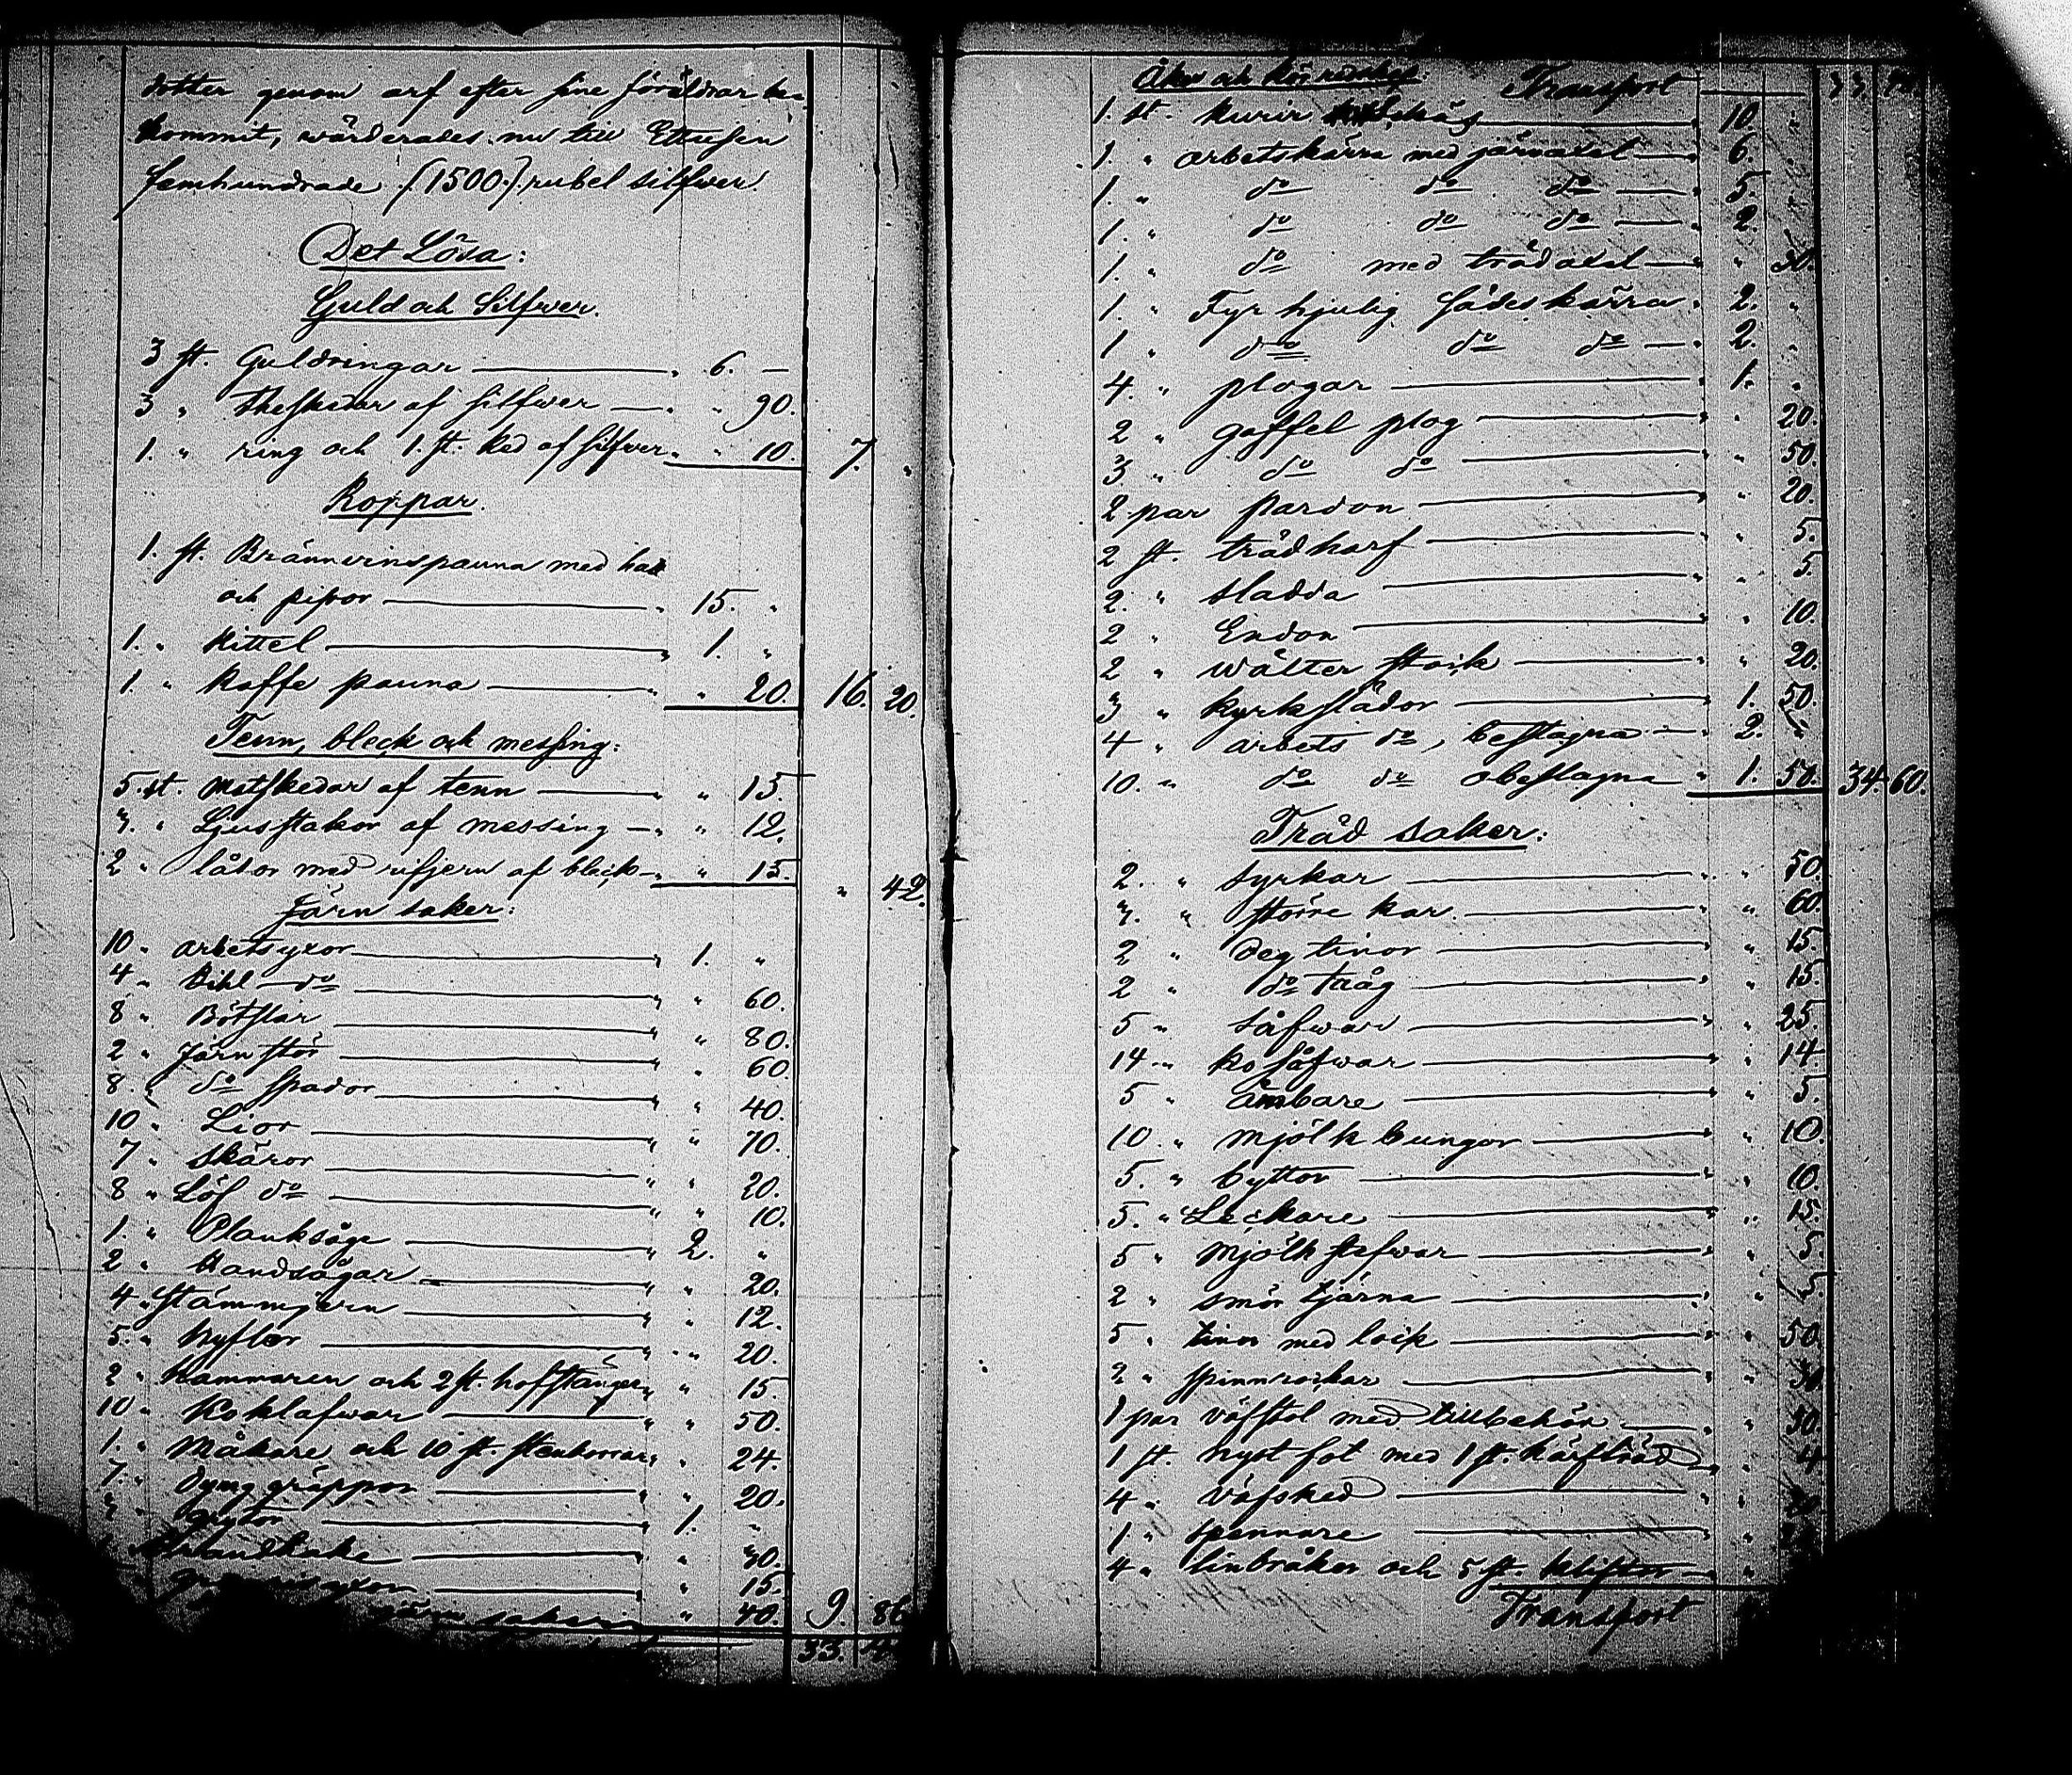 dotter genom arf efter sine föräldrar be-
kommit, wärderades nu till Ettusen
femhundrade (1500) rubel silfwer.
Det Lösa:
Guld och Silfwer.
3 st. Guldringar " 6. —
3 " theskedar af silfwer " " 90.
1. " ring och 1. st. ked af silfwer " " 10. 7. "
Koppar.
1. st. Brännvinspanna med hatt
och pipor " 15. "
1. " Kittel " 1. "
1. " kaffe panna " " 20. 16. 20.
Tenn, bleck och messing:
5. st. matskedar af tenn " " 15.
3. " Ljusstakar af messing " " 12.
2 " låtor med rifjern af bleck " " 15. " 42.
Järn saker:
10 " arbetsyxor " 1. "
4 " bihl do " " 60.
8 " Bötslar " " 80.
2 " Järnstör " " 60.
8. " do spador " " 40.
10 " Lior " " 70.
7 " Skäror " " 20.
8 " Löf do " " 10.
1. " Planksåge " 2. "
2 " Handsågar " " 20.
4 " Stämmjern " " 12.
5. " hyflar " " 20.
2 " Hammaren och 2 st. hofstänger " " 15.
10 " Koklafwar " " 50.
1. " Måkare och 10 st. stenborrar " " 24.
7. " dyng gräppor " " 20.
grytor " 1. "
Brandhake " " 30.
" " 15.
järn saker " " 40. 9. 86
33. 4
Åker och Kör redskap: Transport 33.
1. st. kurir 10 "
1. " arbetskärra med järnaxel 6. "
1. " do do do 5. "
1. " do do do 2. "
1. " do med trädaxel "
1. " Fyrhjulig sädeskärra 2. "
1 " do do do 2. "
4. " plogar 1. "
2 " gaffel plog " 20.
3. " do do " 50.
2 par pardon " 20.
2 st. trädharf " 5.
2. " sladda " 5.
2 " Endon " 10.
2 " wälter stock " 20.
3 " kyrkslädor " 1. 50.
4 " arbets do, beslagna 2. "
10. " do do obeslagna " 1. 50. 34. 60.
Träd saker:
2. " Syrkar " " 50.
3. " större kar " " 60.
2 " deg tinor " " 15.
2 " do tråg " " 15.
5 " såfwar " " 25.
14 " ko såfwar " " 14
5 " ämbare " " 5.
10. " mjölk bungor " " 10.
5. " byttor " " 10
5. " Leckare " " 15.
5 " mjölk stefwar " " 5.
2 " smör tjärna " " 5.
5 " tinor med lock " " 50.
2 " spinnrockar " " 30
1 par väfstol med tillbehör " " 50.
1 st. nyst fot med 1 st. härfträd " " 4
4 " väfsked " "
1 " spennare " "
4 " linbråkor och 5 st. klifter "
Transport